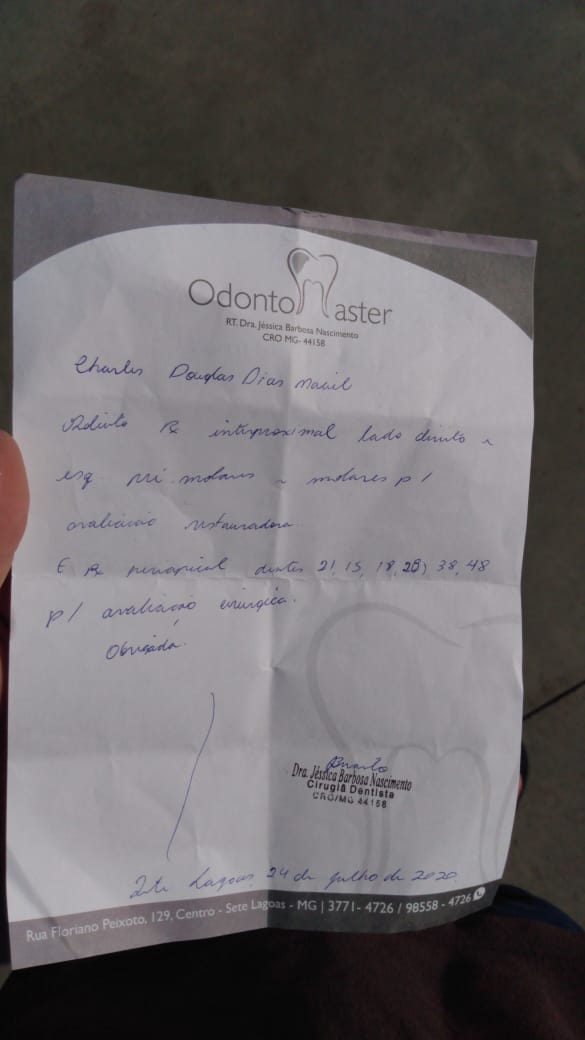 Odonto Master
RT. Dra. Jéssica Barbosa Nascimento
CRO MG- 44158
Charles Douglas Dias Maciel
Solicito Rx interproximal lado direito e
esq. pré molares e molares p/
avaliação restauradora.
E Rx periapical dentes 21, 15, 18, 28, 38, 48
p/ avaliação cirúrgica.
Obrigada.
Dra. Jéssica Barbosa Nascimento
Cirurgiã Dentista
CRO/MG 44158
Sete Lagoas, 24 de julho de 2020
Rua Floriano Peixoto, 129, Centro - Sete Lagoas - MG | 3771- 4726 / 98558 - 4726